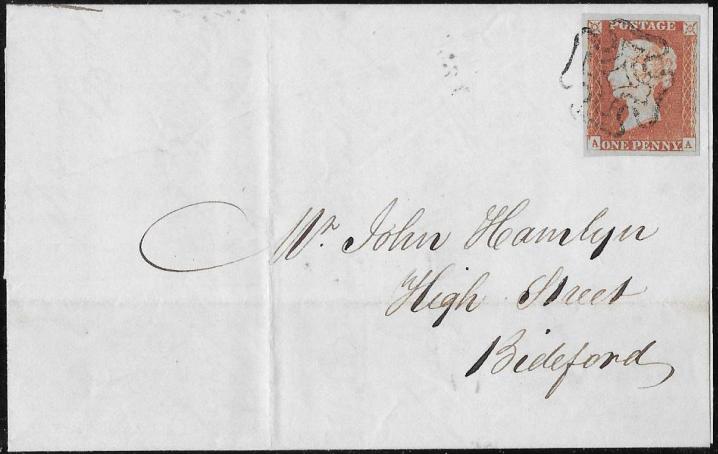 POSTAGE
A ONE PENNY A
Mr. John Hamlyn
High Street
Bideford